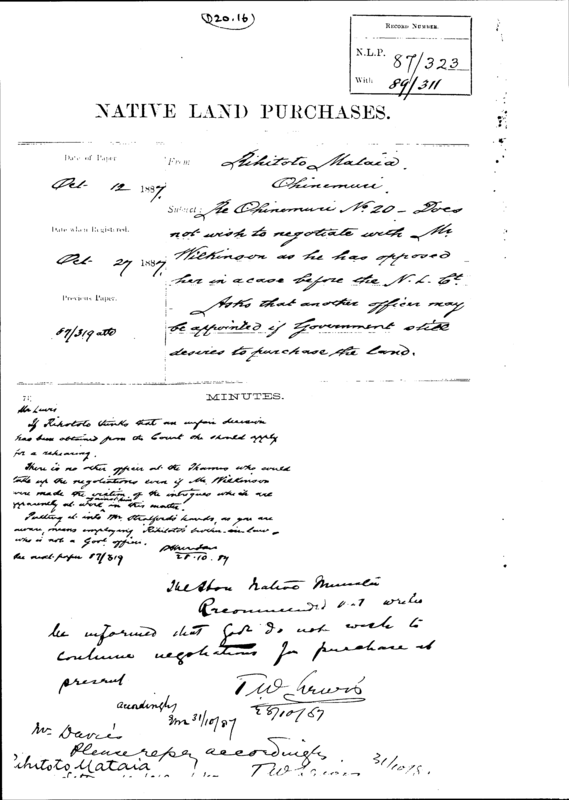 (D20.16)
RECORD NUMBER.
N.L.P. 87/323
With 89/311
NATIVE LAND PURCHASES.
Date of Paper
Oct 12 1887.
Date when Registered.
Oct 27 1887
Previous Paper.
87/319 attd
From Rihitoto Mataia.
Ohinemuri.
Subject: Re Ohinemuri No 20 - Does
not wish to negotiate with Mr
Wilkinson as he has opposed
her in a case before the N. L. Ct.
Asks that another officer may
be appointed if Government still
desires to purchase the land.
MINUTES.
Mr Lewis
If Rihitoto thinks that an unfair decision
has been obtained from the Court she should apply
for a rehearing.
There is no other officer at the Thames who could
take up the negotiations even if Mr Wilkinson
were made the victim of the intrigues which are
apparently at work against him in this matter.
Putting it into Mr Stratford's hands, as you are
aware, means employing Rihitoto's brother-in-law
who is not a Govt officer.
See next paper 87/319
28.10.87
The Hon Native Minister
Recommended that writer
be informed that Govt do not wish to
continue negotiations for purchase at
present
T W Lewis
28/10/87
accordingly
31/10/87
Mr Davies
Please reply accordingly
T W Lewis 31/10/8
Rihitoto Mataia